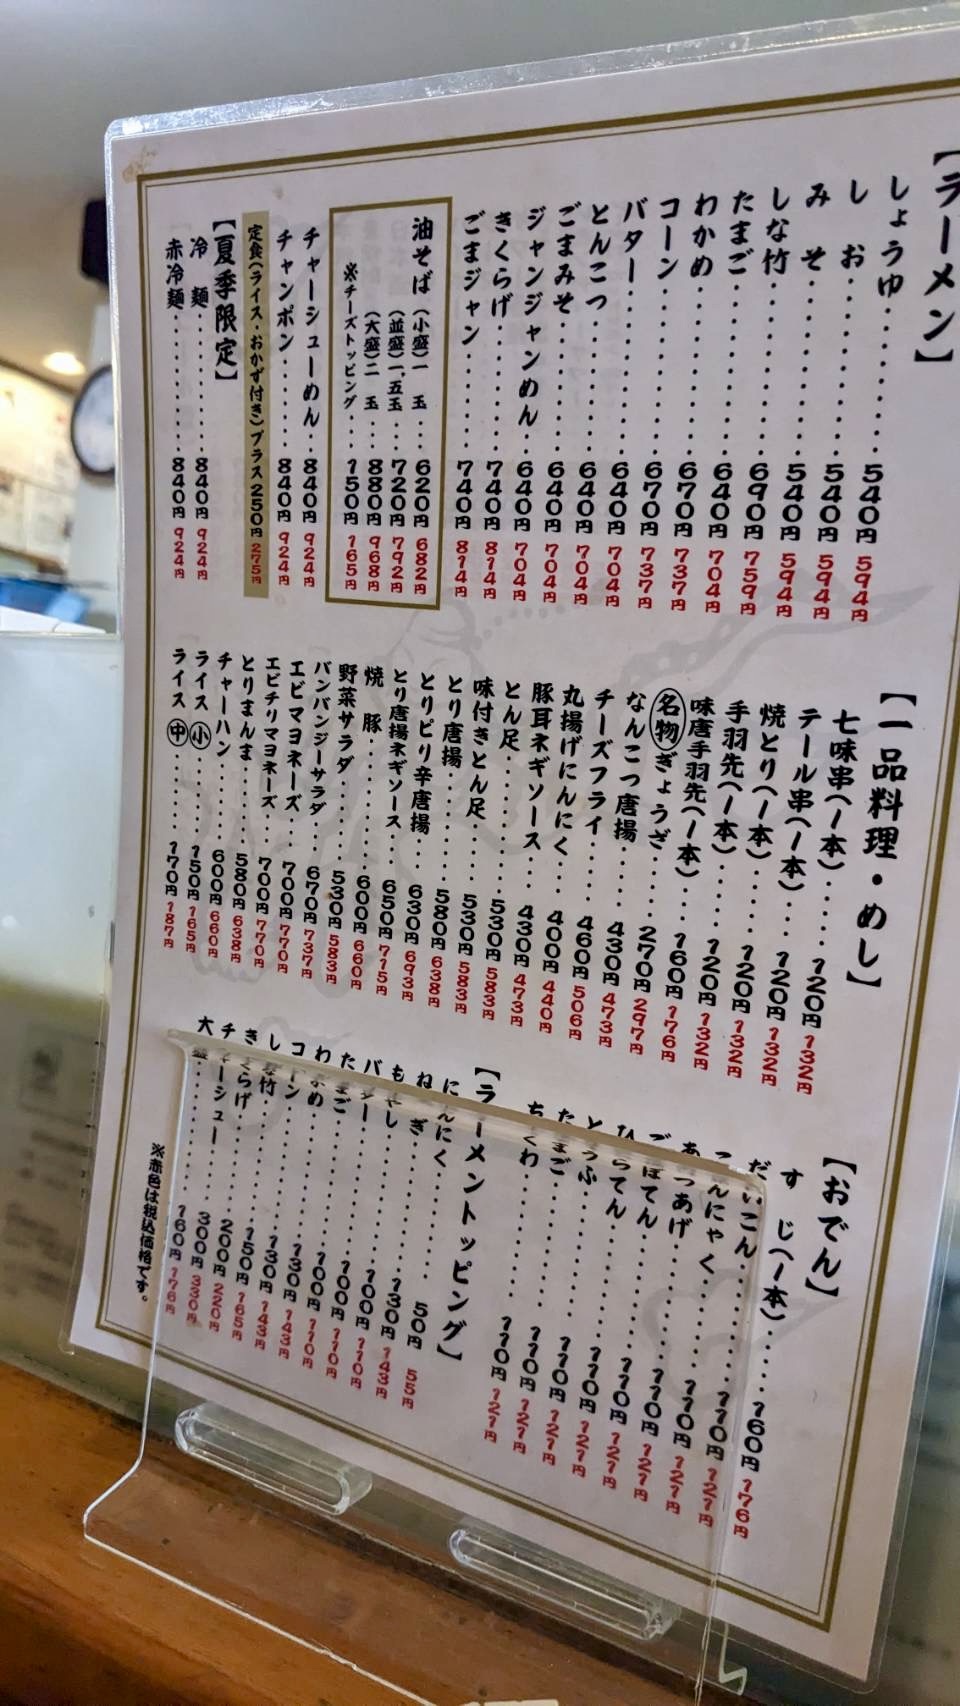 【ラーメン】
しょうゆ 540円 594円
しお 540円 594円
みそ 540円 594円
しな竹 690円 759円
たまご 640円 704円
わかめ 670円 737円
コーン 670円 737円
バター 640円 704円
とんこつ 640円 704円
ごまみそ 640円 704円
ジャンジャンめん 640円 704円
きくらげ 740円 814円
ごまジャン 740円 814円
油そば (小盛)一玉 620円 682円
(並盛)一,五玉 720円 792円
(大盛)二玉 880円 968円
※チーズトッピング 150円 165円
チャーシューめん 840円 924円
チャンポン 840円 924円
定食(ライス・おかず付き)プラス 250円 275円
【夏季限定】
冷麺 840円 924円
赤冷麺 840円 924円
【一品料理・めし】
七味串(1本) 120円 132円
テール串(1本) 120円 132円
焼とり(1本) 120円 132円
手羽先(1本) 120円 132円
味唐手羽先(1本) 160円 176円
名物ぎょうざ 270円 297円
なんこつ唐揚 430円 473円
チーズフライ 460円 506円
丸揚げにんにく 400円 440円
豚耳ネギソース 430円 473円
とん足 530円 583円
味付きとん足 530円 583円
とり唐揚 580円 638円
とりピリ辛唐揚 630円 693円
とり唐揚ネギソース 650円 715円
焼豚 600円 660円
野菜サラダ 530円 583円
バンバンジーサラダ 670円 737円
エビマヨネーズ 700円 770円
エビチリマヨネーズ 700円 770円
とりまんま 580円 638円
チャーハン 600円 660円
ライス小 150円 165円
ライス中 170円 187円
【おでん】
すじ(1本) 160円 176円
だいこん 110円 121円
こんにゃく 110円 121円
あつあげ 110円 121円
ごぼてん 110円 121円
ひらてん 110円 121円
とうふ 110円 121円
たまご 110円 121円
ちくわ 110円 121円
【ラーメントッピング】
にんにく 50円 55円
ねぎ 130円 143円
もやし 100円 110円
バター 100円 110円
たまご 100円 110円
わかめ 130円 143円
コーン 130円 143円
しな竹 150円 165円
きくらげ 200円 220円
チャーシュー 300円 330円
大盛 160円 176円
※赤色は税込価格です。